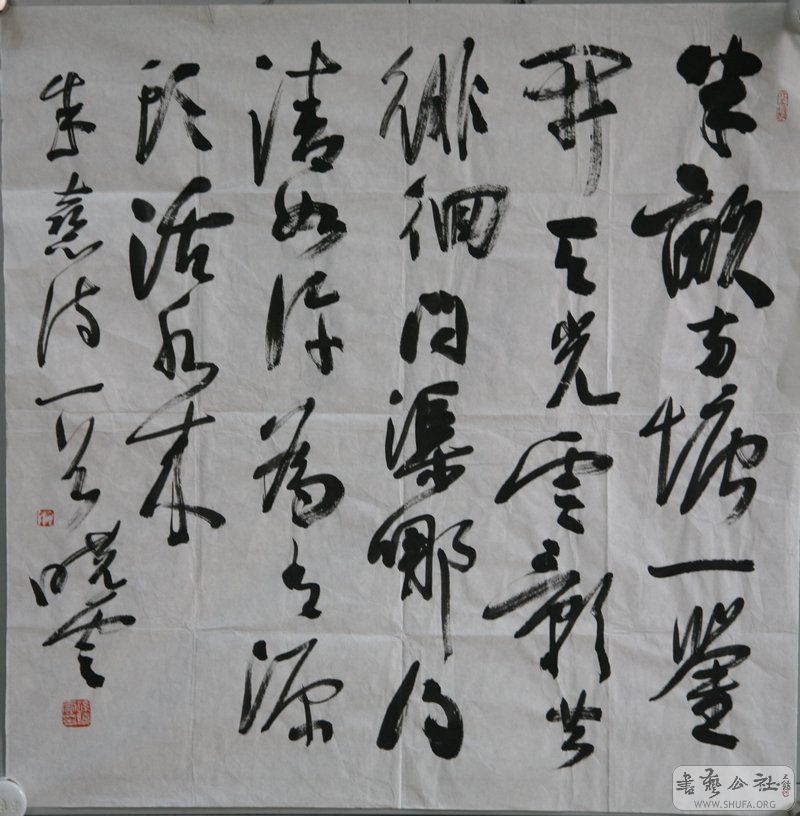 半畝方塘一鑒
开天光雲影共
徘徊问渠哪得
清如许為有源
头活水来
朱熹诗一首 晓雲
書藝公社
WWW.SHUFA.ORG